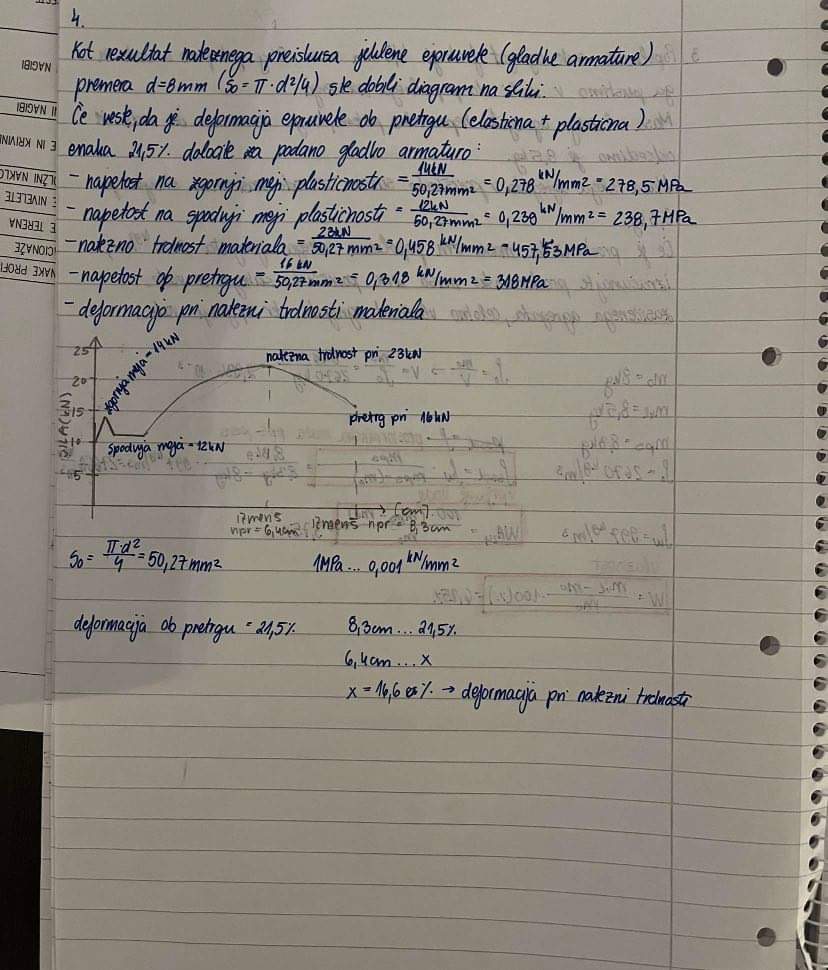 4.
Kot rezultat nateznega preiskusa jeklene epruvete (gladke armature)
premera d=8mm (S₀ = π·d²/4) ste dobili diagram na sliki.
Če veste, da je deformacija epruvete ob pretrgu (elastična + plastična)
enaka 21,5%. določite za podano gladko armaturo:
- napetost na zgornji meji plastičnosti = 14kN / 50,27mm² = 0,278 kN/mm² = 278,5 MPa
- napetost na spodnji meji plastičnosti = 12kN / 50,27mm² = 0,238 kN/mm² = 238,7 MPa
- natezno trdnost materiala = 23kN / 50,27mm² = 0,458 kN/mm² = 457,53 MPa
- napetost ob pretrgu = 16kN / 50,27mm² = 0,318 kN/mm² = 318MPa
- deformacijo pri natezni trdnosti materiala
SILA (kN)
25
20
15
10
5
zgornja meja = 14kN
natezna trdnost pri 23kN
pretrg pri 16kN
spodnja meja = 12kN
[cm]
izmeriš
npr = 6,4cm
izmeriš npr = 8,3cm
S₀ = π·d²/4 = 50,27mm²
1MPa ... 0,001 kN/mm²
deformacija ob pretrgu = 21,5%
8,3cm ... 21,5%
6,4cm ... x
x = 16,6 % → deformacija pri natezni trdnosti
NAGIBI
II NAGIBI
E IN KRIVIN
E NIVELETE
E TERENA